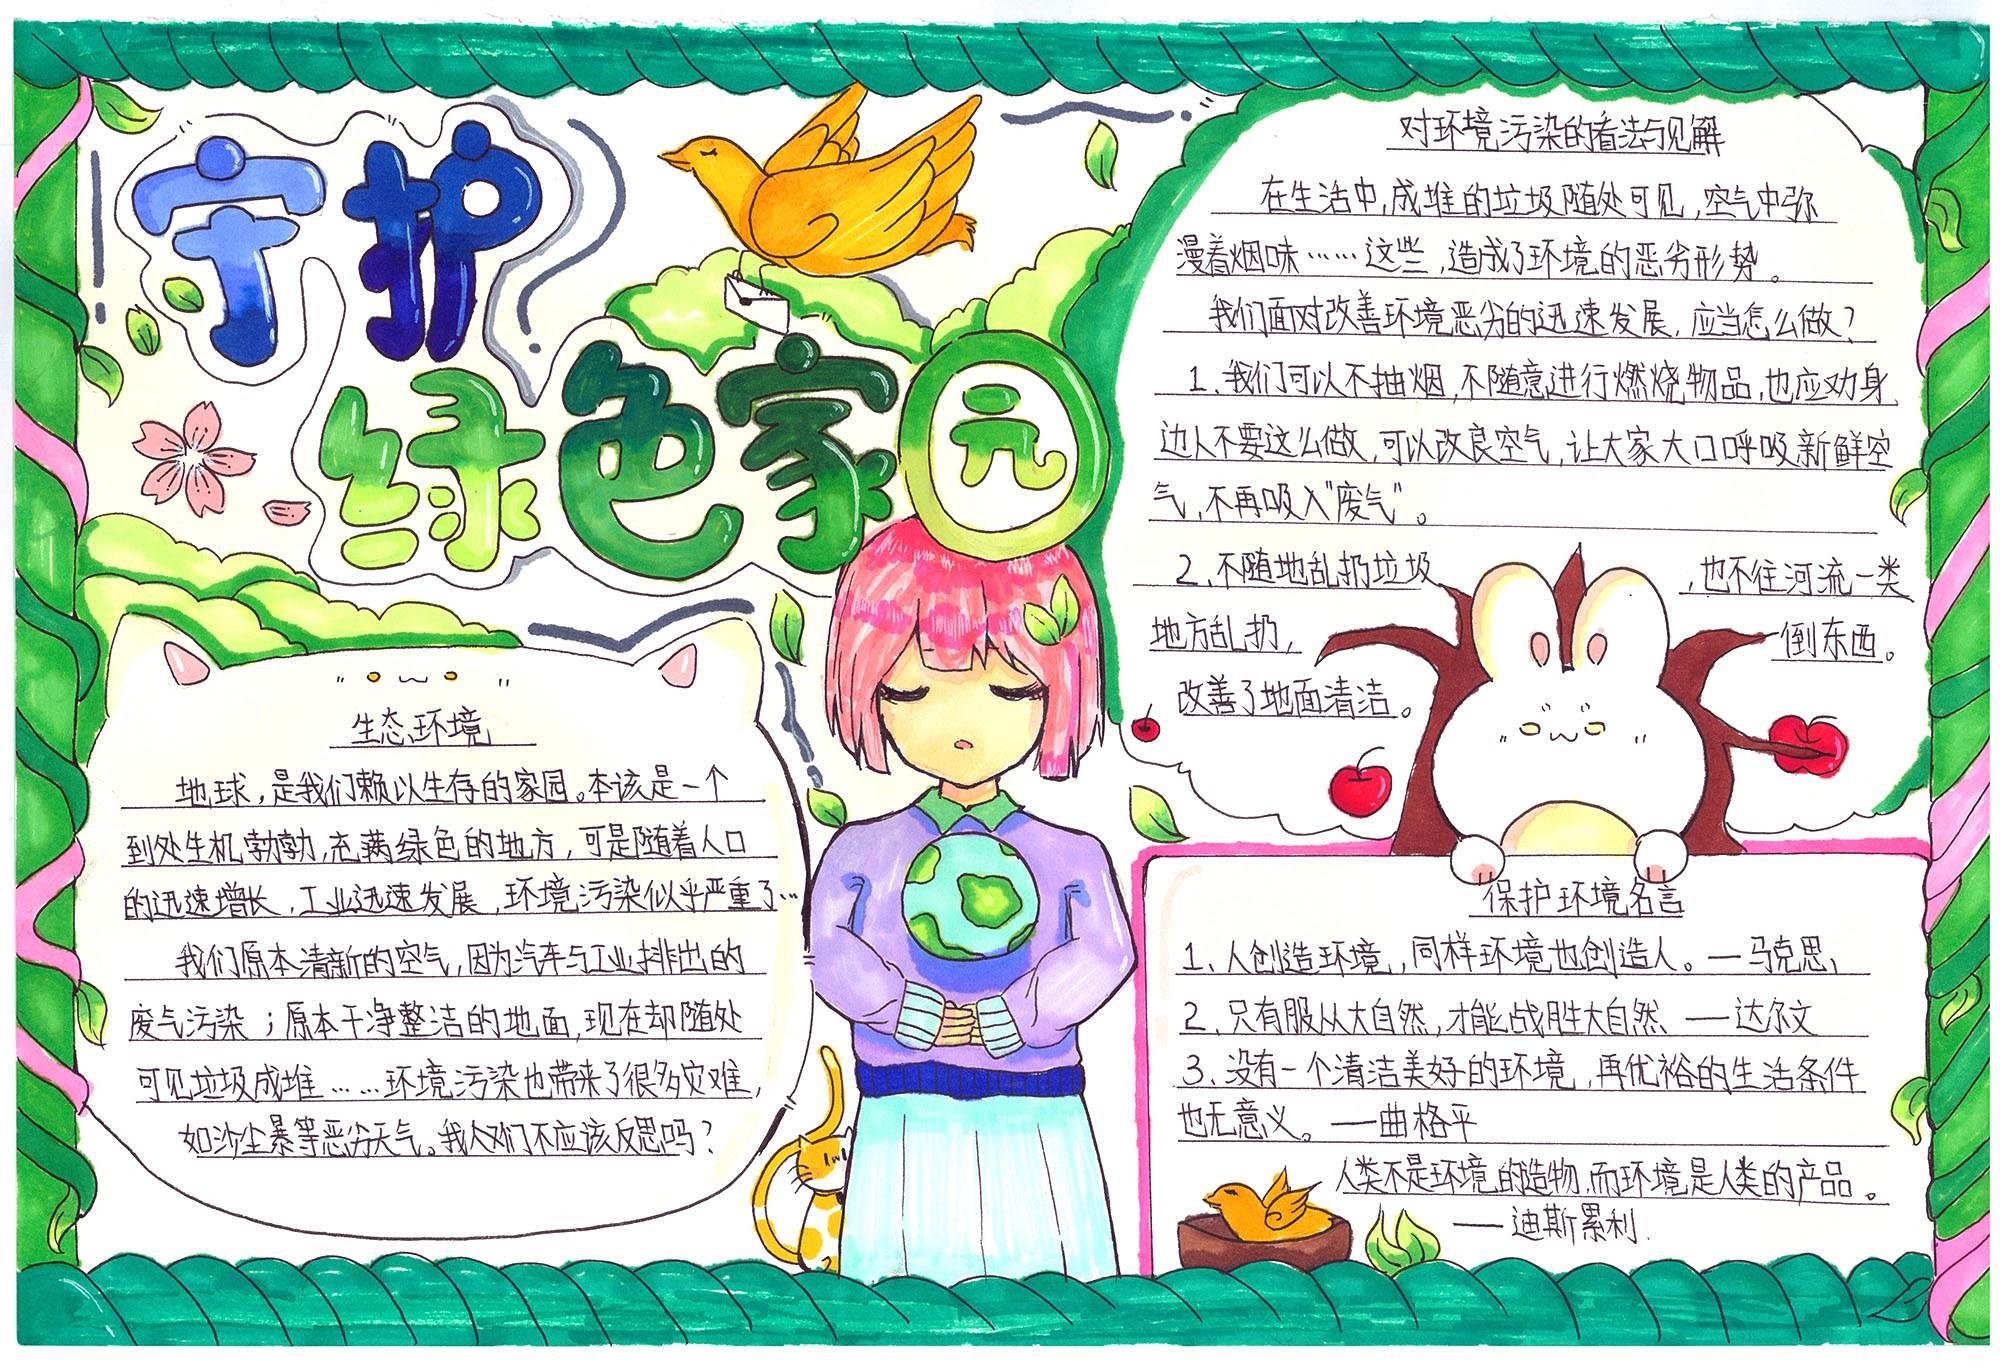 守护
绿色家园
生态环境
地球，是我们赖以生存的家园。本该是一个
到处生机勃勃，充满绿色的地方，可是随着人口
的迅速增长，工业迅速发展，环境污染似乎严重了…
我们原本清新的空气，因为汽车与工业排出的
废气污染；原本干净整洁的地面，现在却随处
可见垃圾成堆……环境污染也带来了很多灾难，
如沙尘暴等恶劣天气。我人们不应该反思吗？
对环境污染的看法与见解
在生活中，成堆的垃圾随处可见，空气中弥
漫着烟味……这些，造成了环境的恶劣形势。
我们面对改善环境恶劣的迅速发展，应当怎么做？
1、我们可以不抽烟，不随意进行燃烧物品，也应劝身
边人不要这么做，可以改良空气，让大家大口呼吸新鲜空
气，不再吸入"废气"。
2、不随地乱扔垃圾，也不往河流一类
地方乱扔，倒东西。
改善了地面清洁。
保护环境名言
1、人创造环境，同样环境也创造人。—马克思
2、只有服从大自然，才能战胜大自然、—达尔文
3、没有一个清洁美好的环境，再优裕的生活条件
也无意义。—曲格平
人类不是环境的造物，而环境是人类的产品。
—迪斯累利.